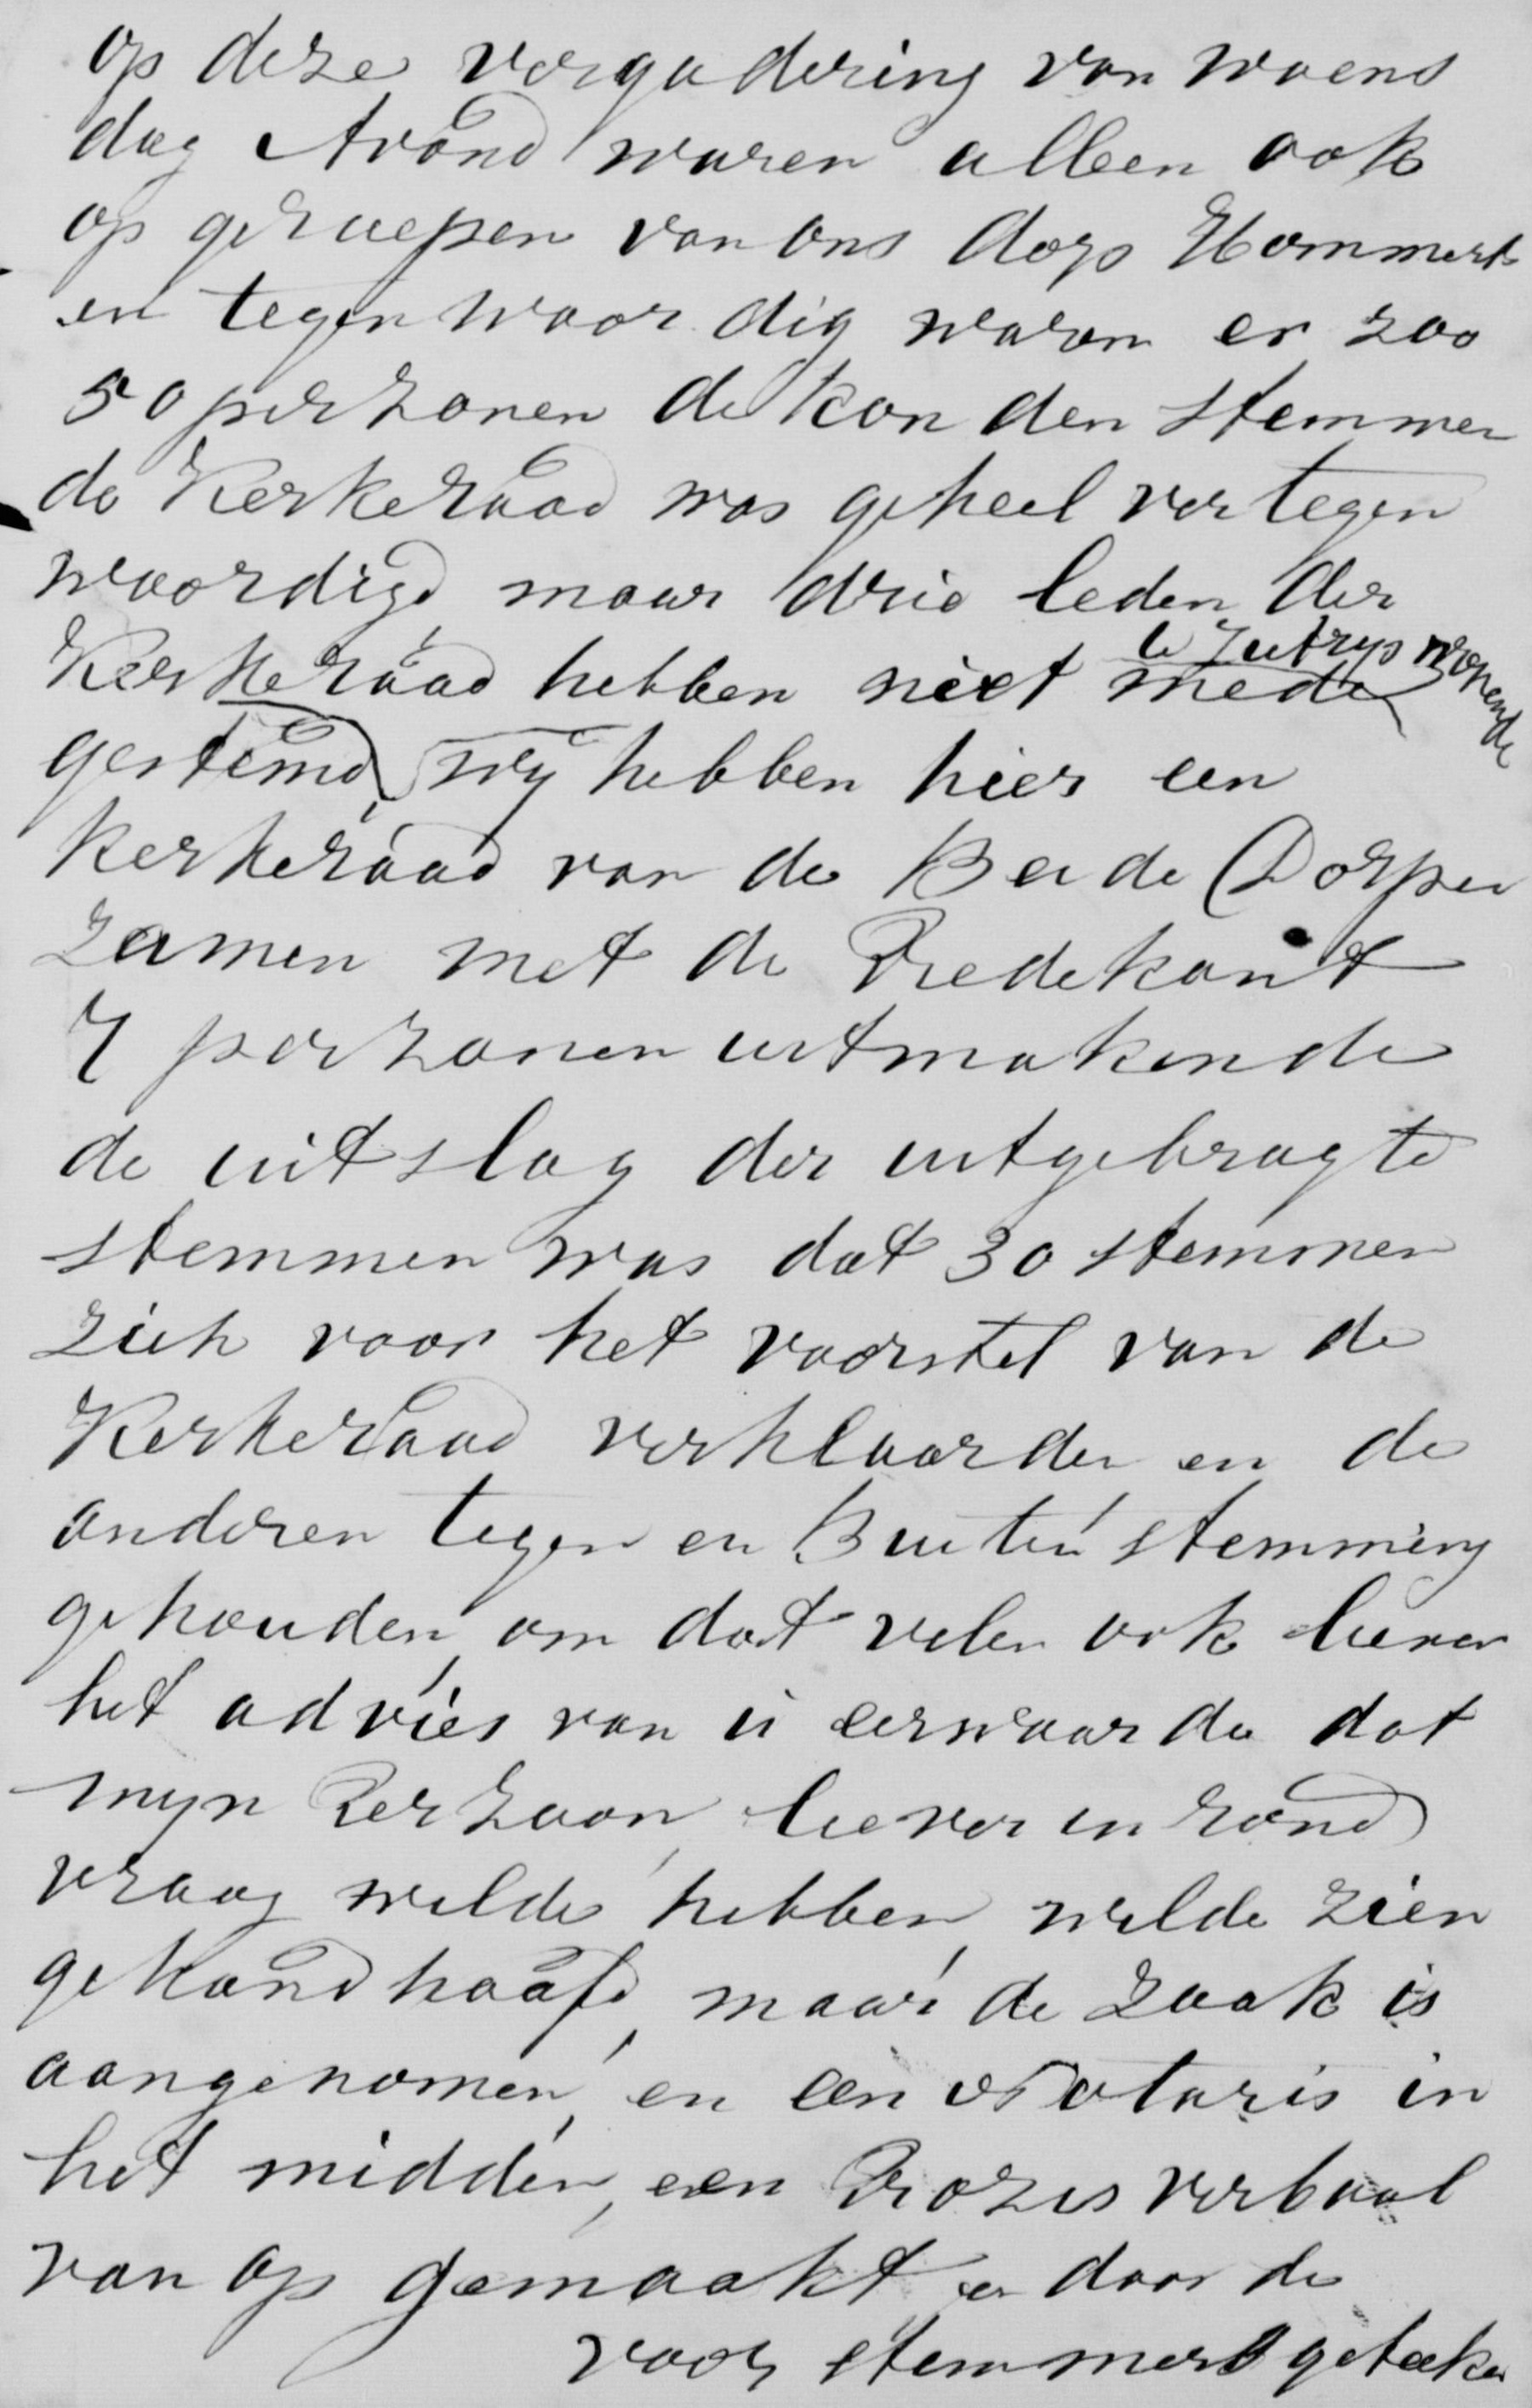 op deze vergadering van woens
dag Avond waren alleen ook
op geroepen van ons dorp Hommert
en tegen woor dig waren er zoo
50 perzonen de kon den stemmen
de Kerkeraad was geheel vertegen
woordigd, maar drie leden der
te Jutryp wonende
Kerkeraad hebben niet mede
gestemd, wij hebben hier een
kerkeraad van de Beide Dorpen
zamen met de Predekant
7 perzonen uitmakende
de uitslag der uitgebragte
stemmen was dat 30 stemmen
zich voor het voorstel van de
Kerkeraad verklaarden en de
anderen tegen en Buiten stemming
gehouden, om dat velen ook liever
het advies van u eerwaarde dat
mijn Perzoon, liever in rond
vraag wilde hebben, wilde zien
gehandhaafd, maar de zaak is
aangenomen, en een Notaris in
het midden, een Prozes verbaal
van op gemaakt en door de
voor stemmers geteeken